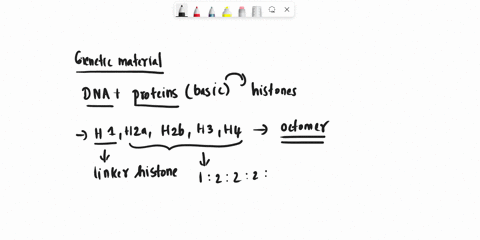 Genetic material
DNA + proteins (basic) histones
→ H1, H2a, H2b, H3, H4 → octomer
linker histone 1 : 2 : 2 : 2 :